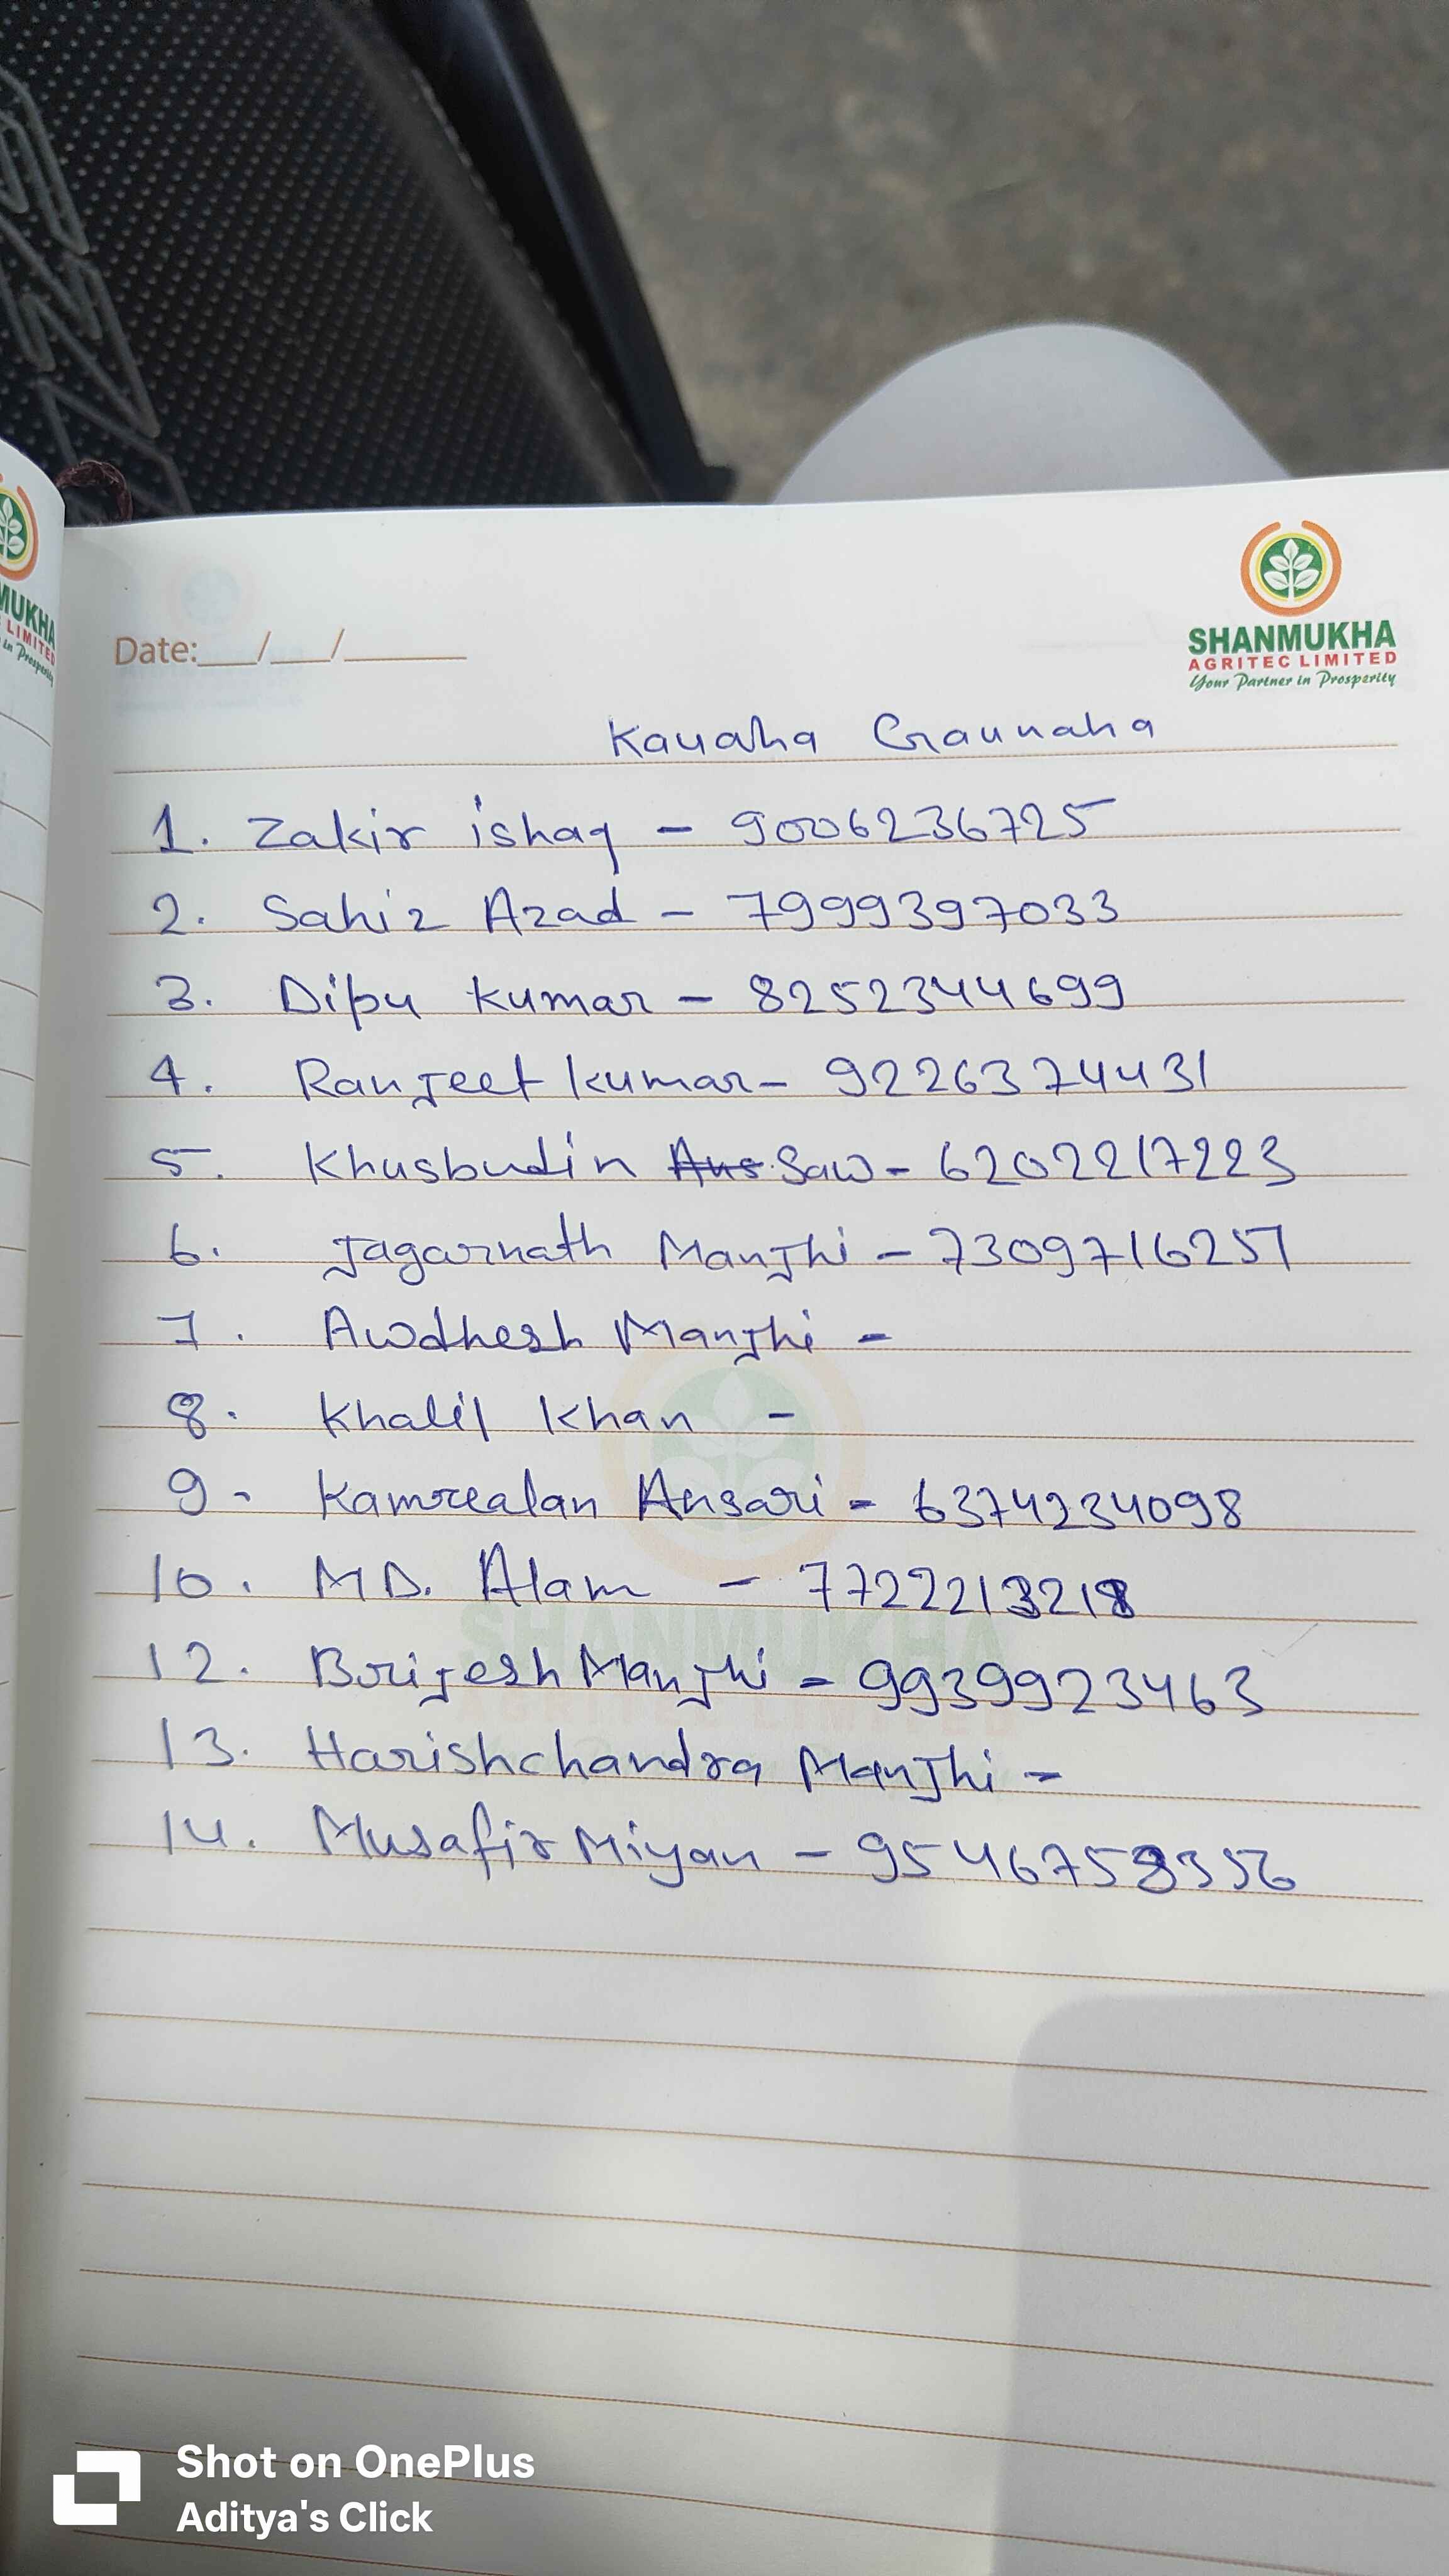 SHANMUKHA
AGRITEC LIMITED
Your Partner in Prosperity
Date:___/___/_____
MUKHA
LIMITED
in Prosperity
Kauaha Graunaha
1. Zakir ishaq - 9006236725
2. Sahiz Azad - 7999397033
3. Dipu Kumar - 8252344699
4. Ranjeet Kumar - 9226374431
5. Khusbudin Saw - 6202217223
6. Jagarnath Manjhi - 7309716257
7. Awdhesh Manjhi -
8. Khalil Khan -
9. Kamrealan Ansari - 6374234098
10. MD. Alam - 7722213218
12. Brijesh Manjhi - 9939923463
13. Harishchandra Manjhi -
14. Musafir Miyan - 9546758356
SHANMUKHA
AGRITEC LIMITED
Shot on OnePlus
Aditya's Click